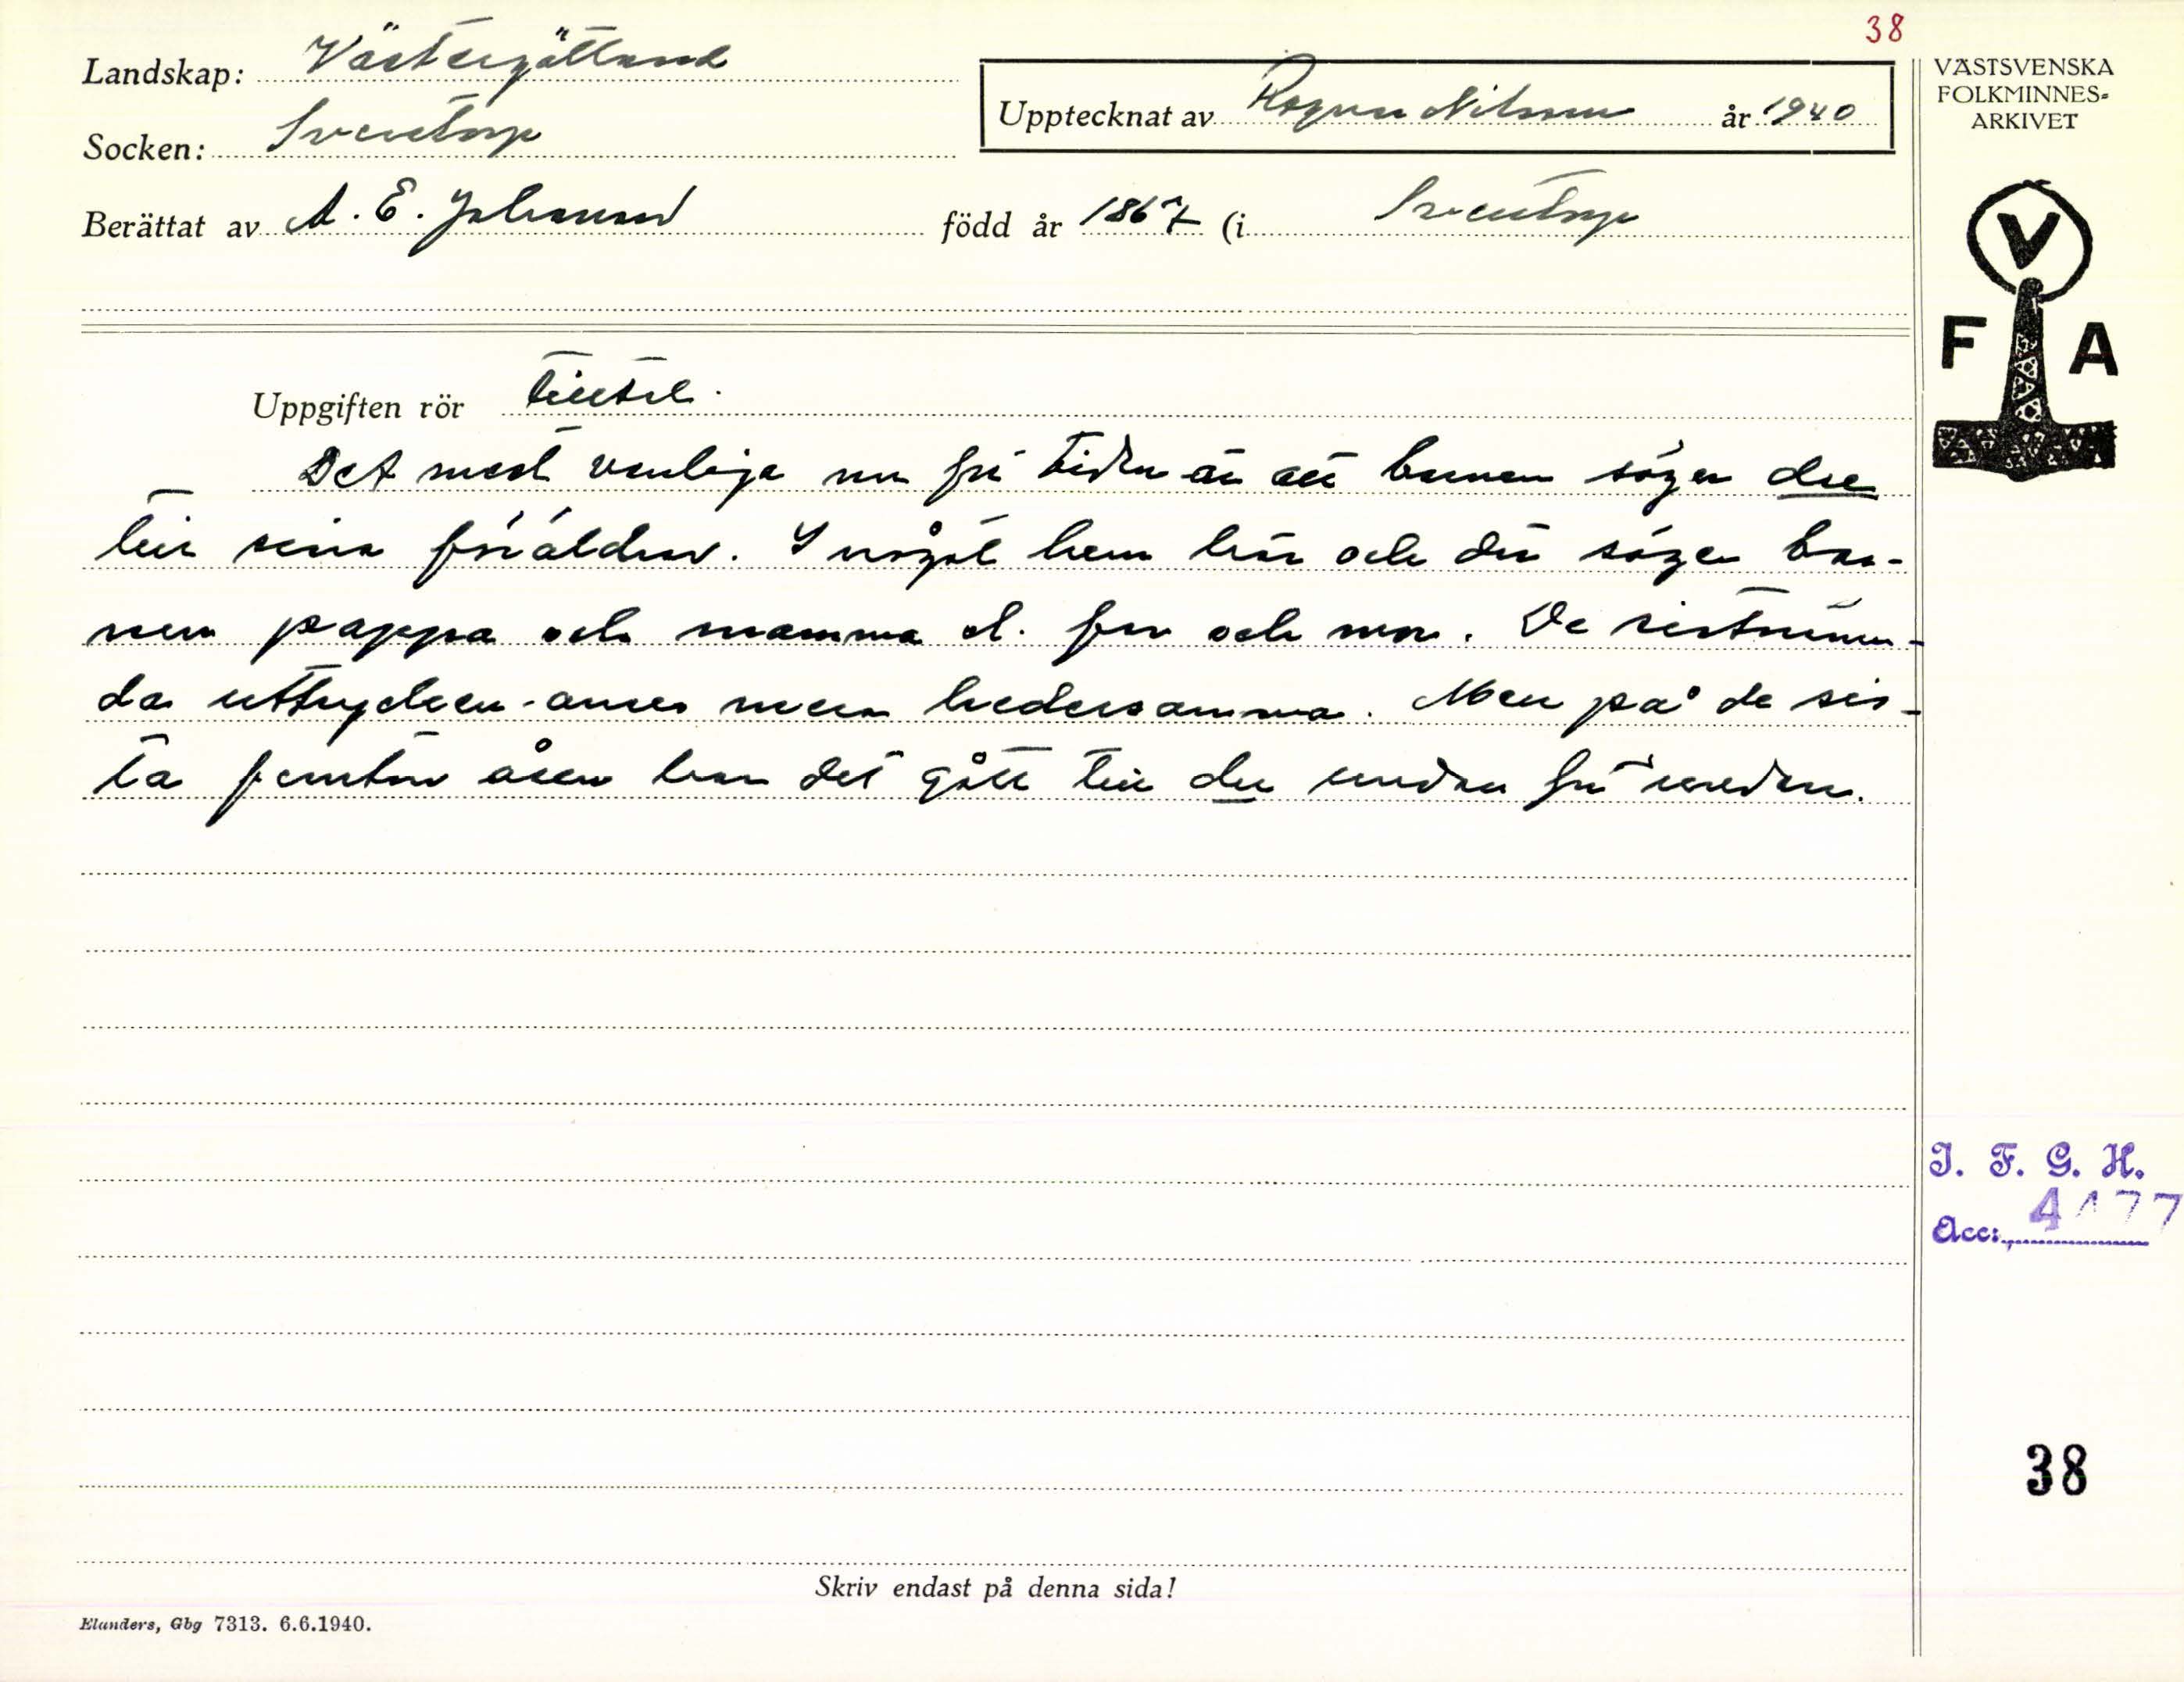 38
Landskap: Västergötland
Upptecknat av Ragnar Nilsson år 1940
Socken: Sventorp
Berättat av A. E. Johansson född år 1867 (i Sventorp
Uppgiften rör tilltal.
Det mest vanliga nu för tiden är att barnen säger du
till sina föräldrar. I något hem här och där säger bar-
nen pappa och mamma el. far och mor. De sistnämn-
da uttrycken anses mera hedersamma. Men på de sis-
ta femton åren har det gått till du undan för undan.
Skriv endast på denna sida!
Elanders, Gbg 7313. 6.6.1940.
VÄSTSVENSKA
FOLKMINNES-
ARKIVET
V
F A
I. F. G. H.
Acc: 4177
38